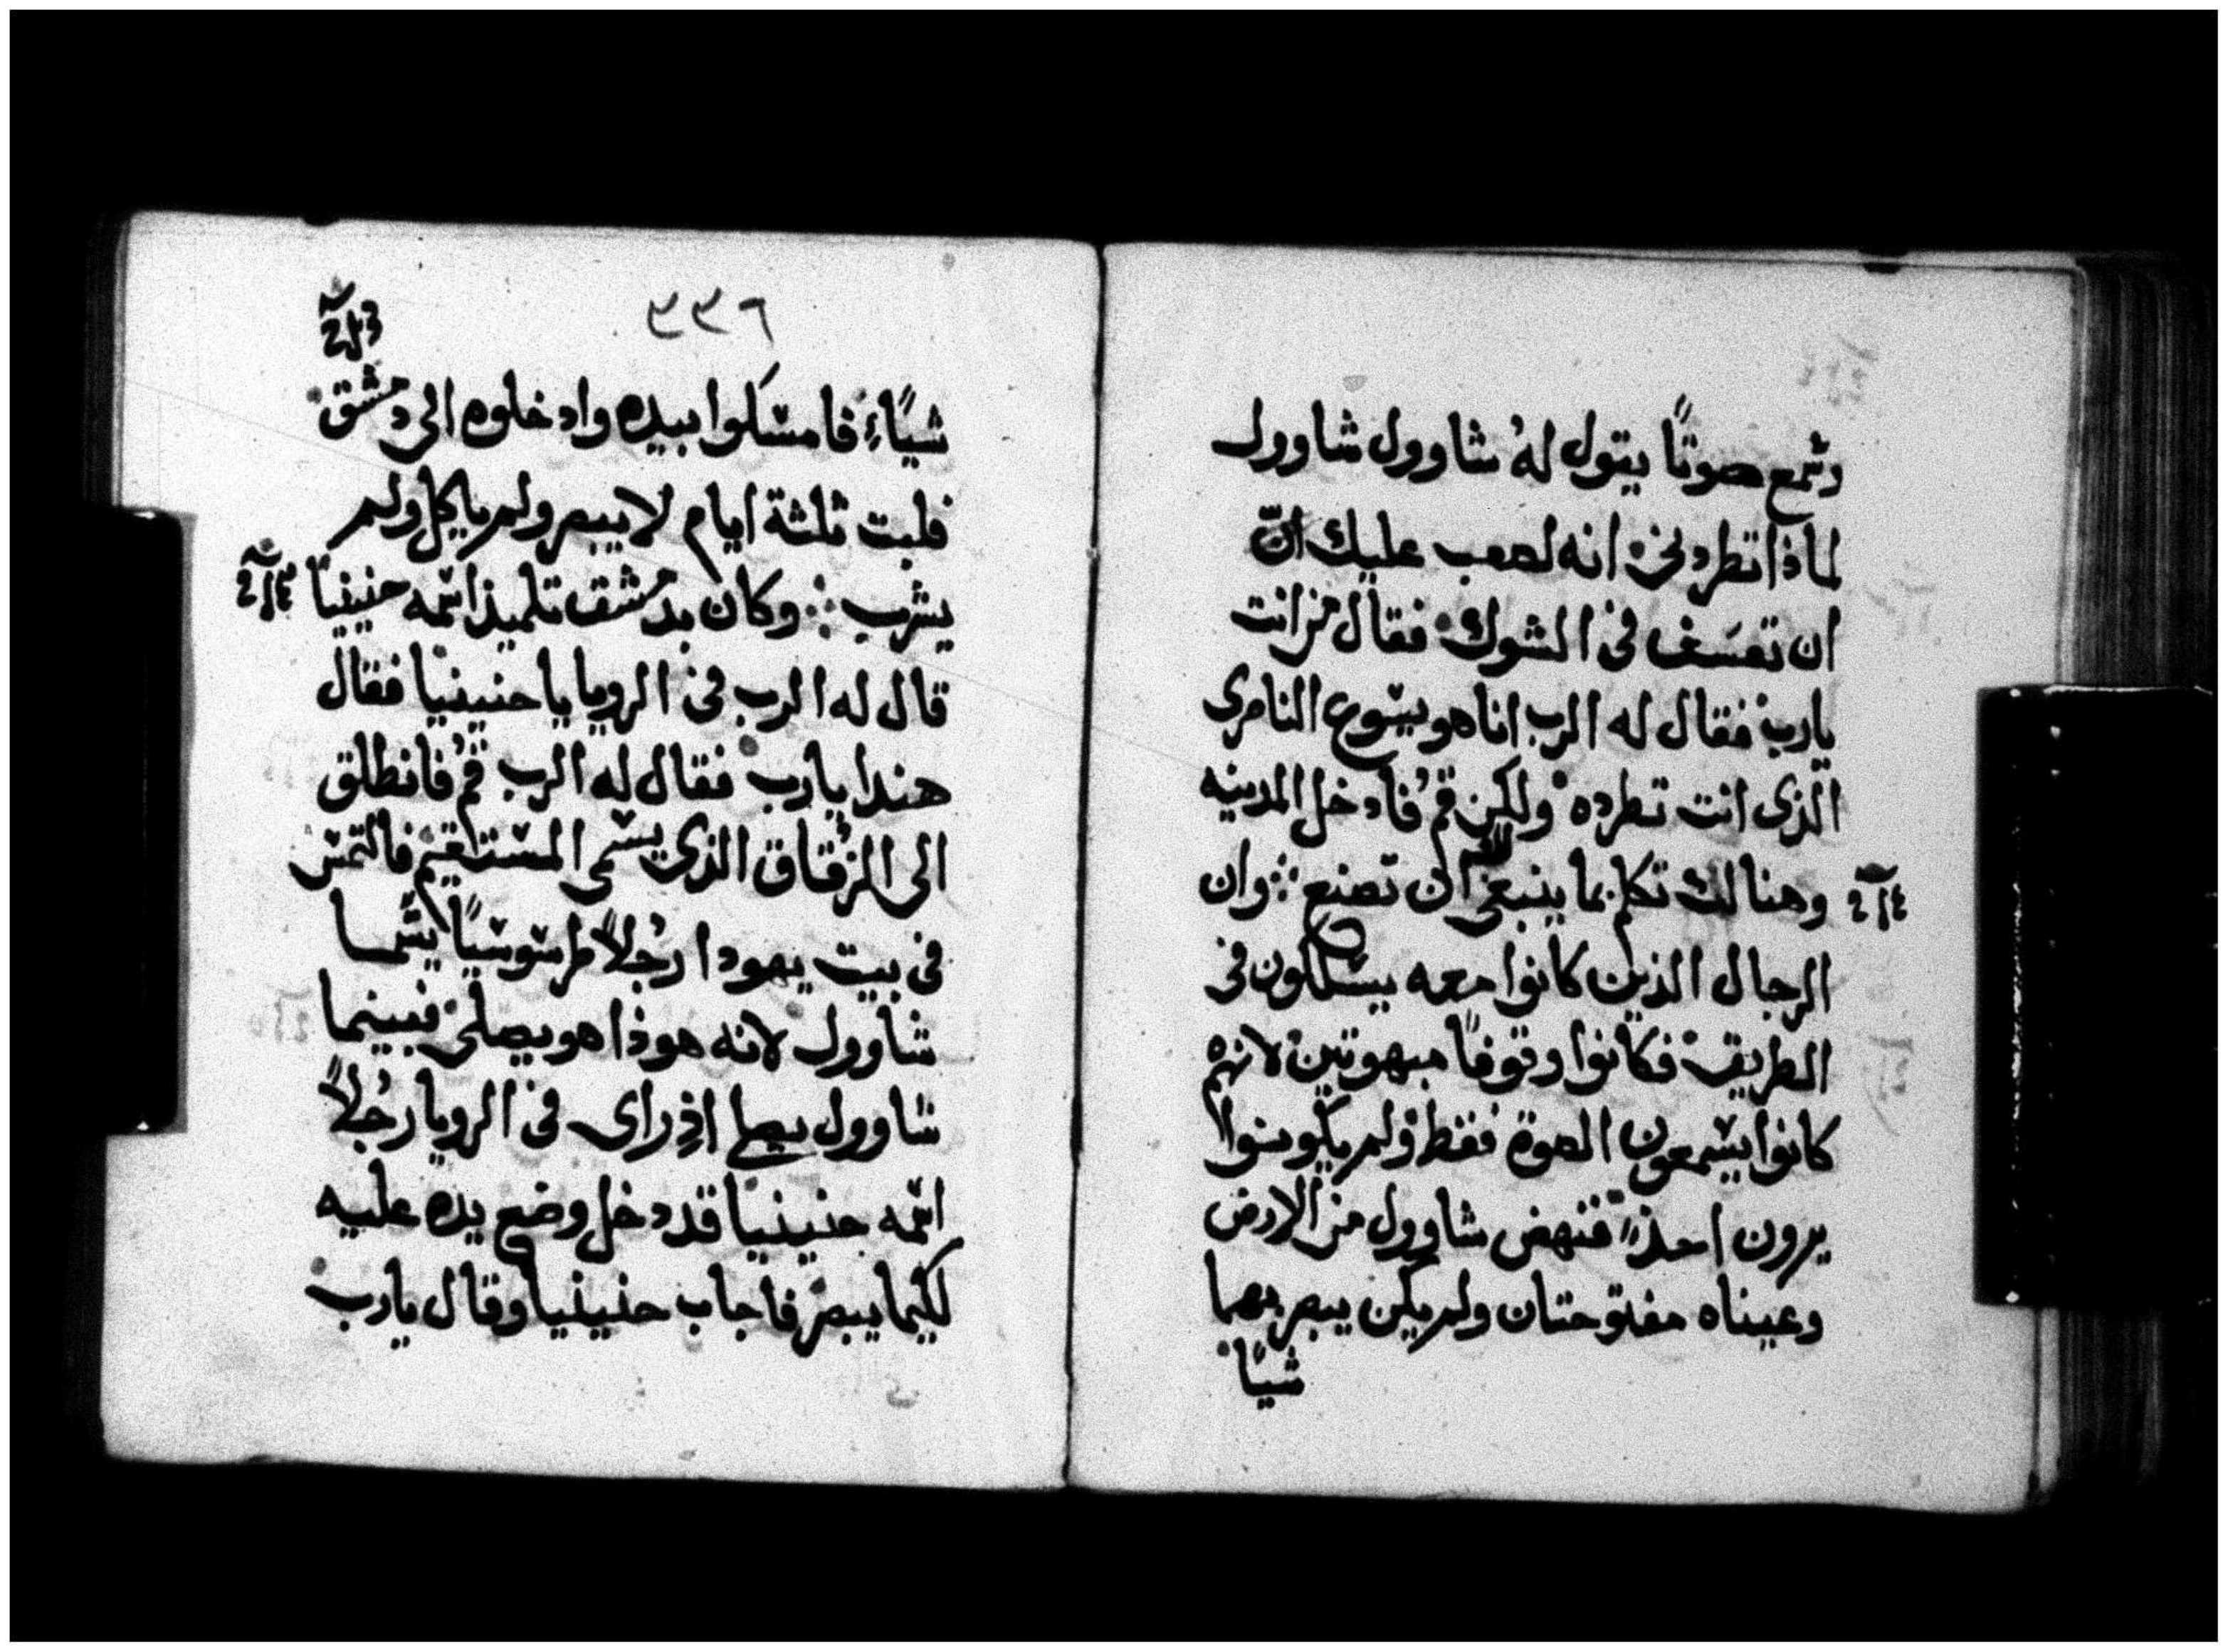 وسمع صوتًا يقول لهُ شاوول شاوول
لماذا تطردني انه لصعب عليك انّ
ان تعسَف في الشوك فقال من انت
يارب فقال له الرب انا هو يسوع الناصري
الذي انت تطرده ولكن قم فادخل المدينه
وهنالك تكلم بما ينبغي ان تصنع ∴ وان
الرجال الذين كانوا معه يسلكون في
الطريق فكانوا وقوفًا مبهوتين لانهم
كانوا يسمعون الصوة فقط ولم يكونوا
يرون احدًا فنهض شاوول من الارض
وعيناه مفتوحتان ولم يكن يبصر بهما
شيًا
٣٣٦
شيًاءً فامسكوا بيده وادخلوه الى دمشق
فلبت ثلثة ايام لا يبصر ولم ياكل ولم
يشرب ∴ وكان بدمشق تلميذ اسمه حنينيا
قال له الرب في الرويا يا حنينيا فقال
هندا يارب فقال له الرب قُم فانطلق
الى الزقاق الذي يسمى المستقيم فالتمس
في بيت يهودا رجُلاً طرسوسيًا يسما
شاوول لانه هوذا هو يصلي فبينما
شاوول اذِ راى في الرويا رجُلاً
اسمه حنينيا قد دخل وضع يده عليه
لكيما يبصر فاجاب حنينيا وقال يارب